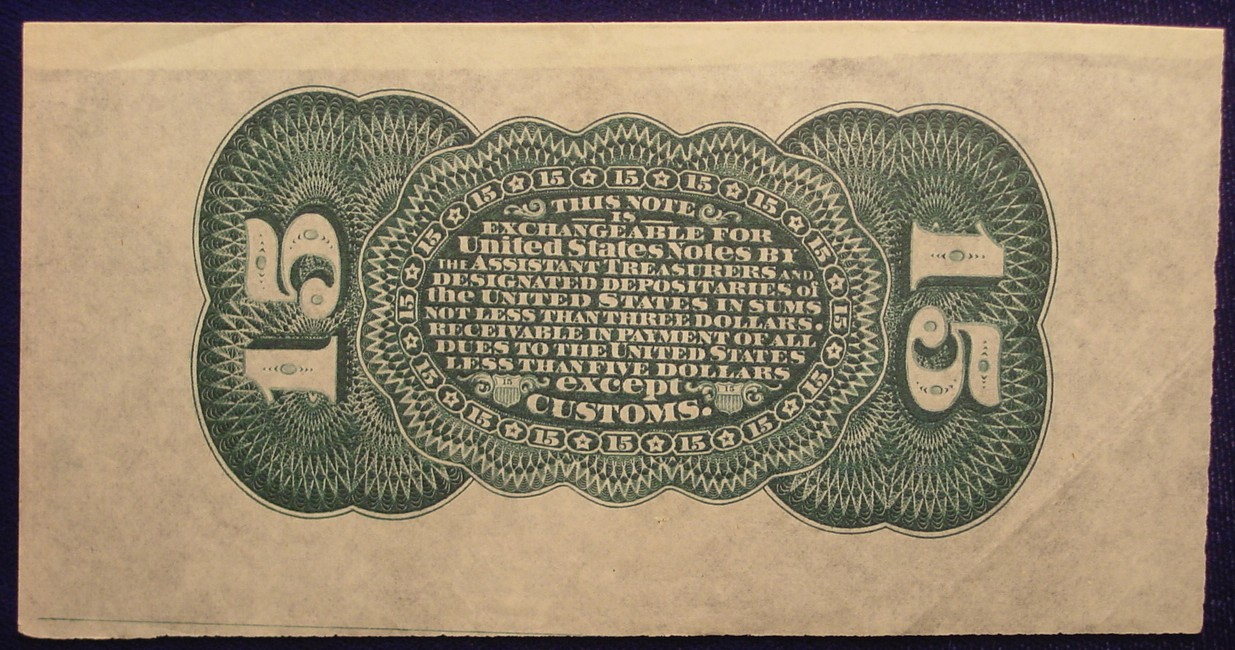 15 15 15 15 15
THIS NOTE
IS
EXCHANGEABLE FOR
United States Notes BY
THE ASSISTANT TREASURERS AND
DESIGNATED DEPOSITARIES of
the UNITED STATES IN SUMS
NOT LESS THAN THREE DOLLARS.
RECEIVABLE IN PAYMENT OF ALL
DUES TO THE UNITED STATES
LESS THAN FIVE DOLLARS
15 except 15
CUSTOMS.
15 15 15 15 15
15
15
15
15
15
15
15
15